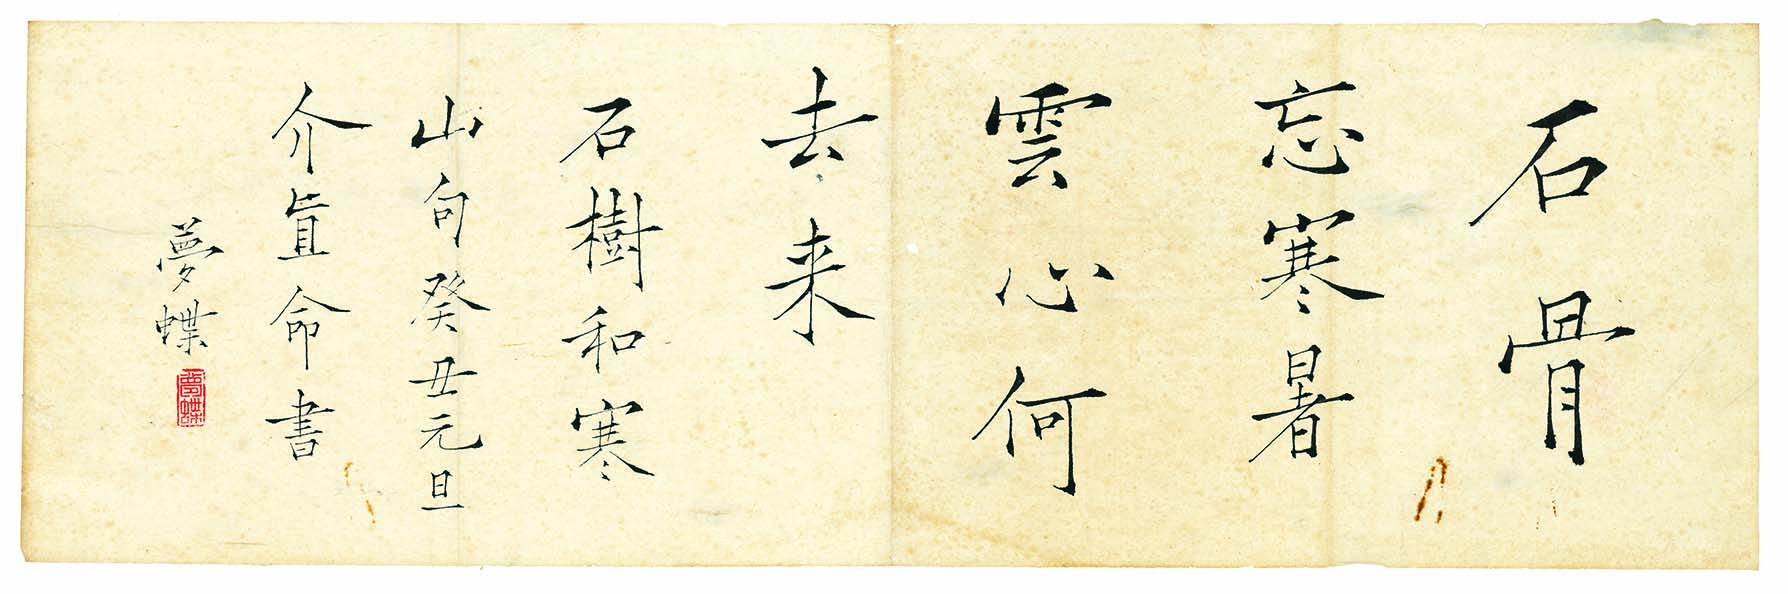 石骨
忘寒暑
雲心何
去来
石樹和寒
山句癸丑元旦
介眞命書
夢蝶
夢蝶